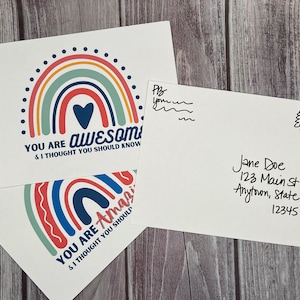 YOU ARE AWESOME
& I THOUGHT YOU SHOULD KNOW
YOU ARE Amaz
& I THOUGHT YOU SHOULD
Jane Doe
123 Main St
Anytown, State
12345